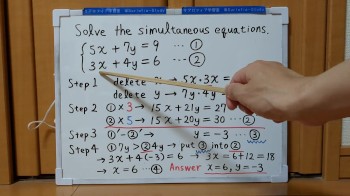 Solve the simultaneous equations.
5x + 7y = 9 … ①
3x + 4y = 6 … ②
Step 1 delete x → 5x・3x =
delete y → 7y・4y
Step 2 ① × 3 → 15x + 21y = 27
② × 5 → 15x + 20y = 30 … ②'
Step 3 ①' - ②' → y = -3 … ③
Step 4 ① 7y > ② 4y → put ③ into ②
→ 3x + 4(-3) = 6 → 3x = 6 + 12 = 18
→ x = 6 … ④ Answer x = 6, y = -3